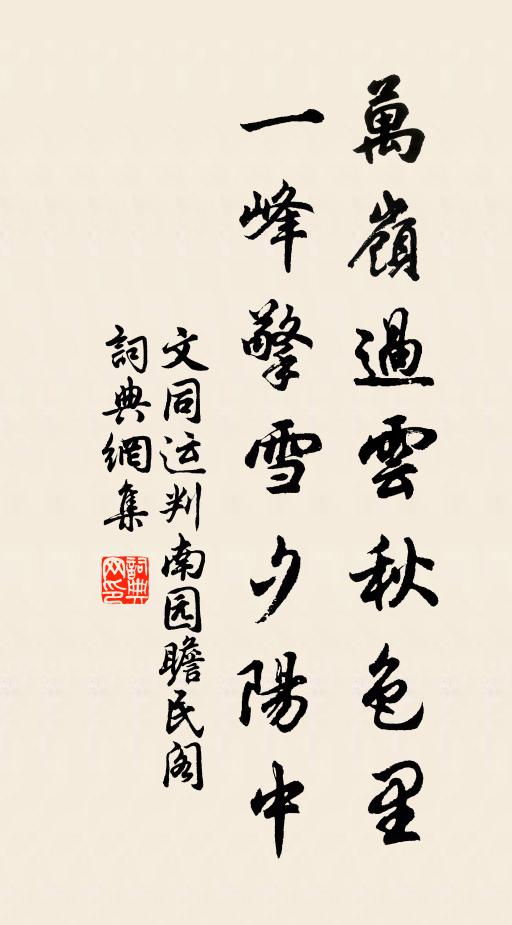 萬嶺過雲秋色里
一峰擎雪夕陽中
文同运判南园瞻民阁
詞典網集
詞典网印